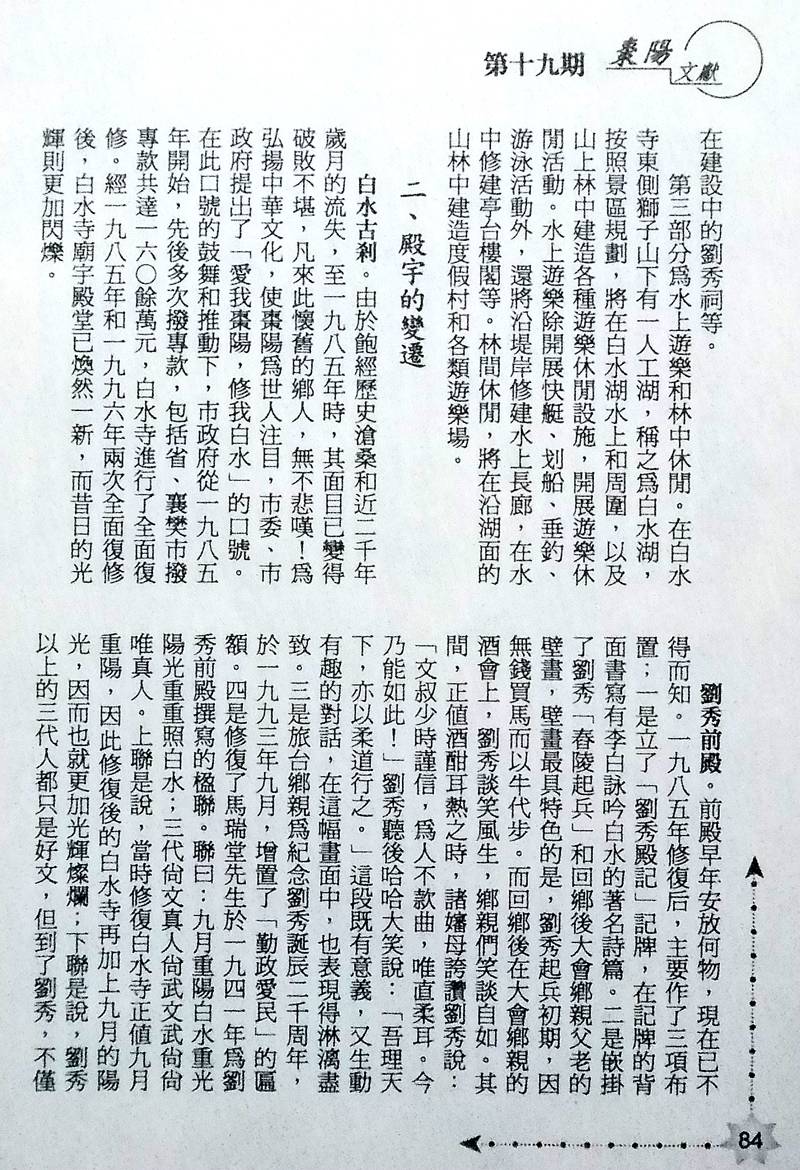 棗陽
文獻
第十九期
在建設中的劉秀祠等。
第三部分爲水上遊樂和林中休閒。在白水
寺東側獅子山下有一人工湖，稱之爲白水湖，
按照景區規劃，將在白水湖水上和周圍，以及
山上林中建造各種遊樂休閒設施，開展遊樂休
閒活動。水上遊樂除開展快艇、划船、垂釣、
游泳活動外，還將沿堤岸修建水上長廊，在水
中修建亭台樓閣等。林間休閒，將在沿湖面的
山林中建造度假村和各類遊樂場。
二、殿宇的變遷
白水古剎。由於飽經歷史滄桑和近二千年
歲月的流失，至一九八五年時，其面目已變得
破敗不堪，凡來此懷舊的鄉人，無不悲嘆！爲
弘揚中華文化，使棗陽爲世人注目，市委、市
政府提出了「愛我棗陽，修我白水」的口號。
在此口號的鼓舞和推動下，市政府從一九八五
年開始，先後多次撥專款，包括省、襄樊市撥
專款共達一六〇餘萬元，白水寺進行了全面復
修。經一九八五年和一九九六年兩次全面復修
後，白水寺廟宇殿堂已煥然一新，而昔日的光
輝則更加閃爍。
劉秀前殿。前殿早年安放何物，現在已不
得而知。一九八五年修復后，主要作了三項布
置；一是立了「劉秀殿記」記牌，在記牌的背
面書寫有李白詠吟白水的著名詩篇。二是嵌掛
了劉秀「舂陵起兵」和回鄉後大會鄉親父老的
壁畫，壁畫最具特色的是，劉秀起兵初期，因
無錢買馬而以牛代步。而回鄉後在大會鄉親的
酒會上，劉秀談笑風生，鄉親們笑談自如。其
間，正值酒酣耳熱之時，諸嬸母誇讚劉秀說：
「文叔少時謹信，爲人不款曲，唯直柔耳。今
乃能如此！」劉秀聽後哈哈大笑說：「吾理天
下，亦以柔道行之。」這段既有意義，又生動
有趣的對話，在這幅畫面中，也表現得淋漓盡
致。三是旅台鄉親爲紀念劉秀誕辰二千周年，
於一九九三年九月，增置了「勤政愛民」的匾
額。四是修復了馬瑞堂先生於一九四一年爲劉
秀前殿撰寫的楹聯。聯曰：九月重陽白水重光
陽光重重照白水；三代尚文真人尚武文武尚尚
唯真人。上聯是說，當時修復白水寺正值九月
重陽，因此修復後的白水寺再加上九月的陽
光，因而也就更加光輝燦爛；下聯是說，劉秀
以上的三代人都只是好文，但到了劉秀，不僅
84